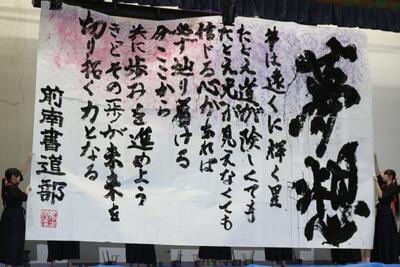 夢想
夢は遠くに輝く星
たとえ道が険しくても
たとえ光が見えなくても
信じる心があれば
必ず辿り着ける
今ここから
共に歩みを進めよう
きっとその一歩が未来を
切り拓く力となる
前南書道部